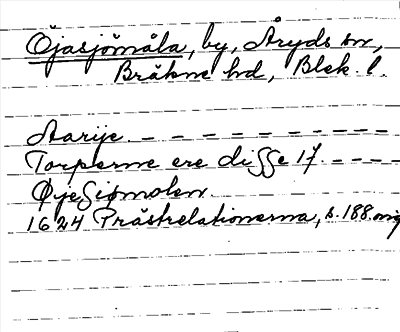 Öjasjömåla, by, Åryds sn,
Bräkne hd, Blek. l.
Aarije. – – – – – – – – – –
Torperne ere disse 17. – – – –
Øjesiømolen.
1624 Prästrelationerna, s. 188. orig